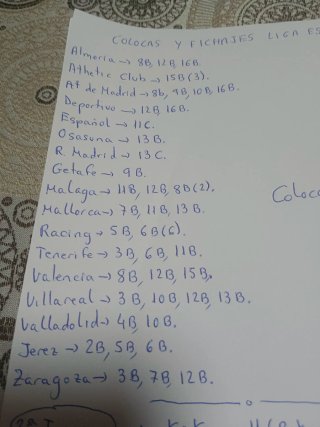 COLOCAS Y FICHAJES LIGA ES
Almería → 8B, 12B, 16B.
Athletic Club → 15B(3).
At de Madrid → 8b, 9B, 10B, 16B.
Deportivo → 12B, 16B.
Español → 11C.
Osasuna → 13B.
R. Madrid → 13C.
Getafe → 9B.
Malaga → 11B, 12B, 8B(2).
Coloca
Mallorca → 7B, 11B, 13B.
Racing → 5B, 6B(6).
Tenerife → 3B, 6B, 11B.
Valencia → 8B, 12B, 15B.
Villareal → 3B, 10B, 12B, 13B.
Valladolid → 4B, 10B.
Jerez → 2B, 5B, 6B.
Zaragoza → 3B, 7B, 12B.